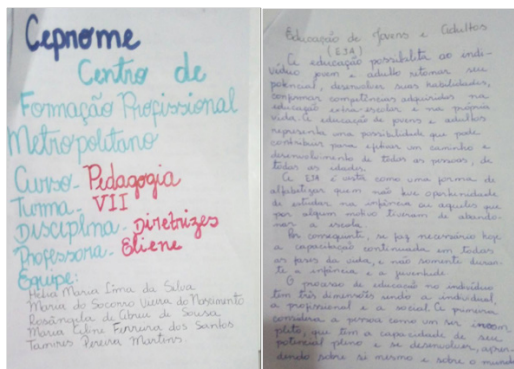 Cepnome
Centro de
Formação Profissional
Metropolitano
Curso - Pedagogia
Turma - VII
Disciplina - Diretrizes
Professora - Eliene
Equipe:
Hélia Maria Lima da Silva
Maria do Socorro Vieira do Nascimento
Rosângela de Abreu de Sousa
Maria Ferreira dos Santos
Tamires Pereira Martins
Educação de Jovens e Adultos
(EJA)
A educação possibilita ao indi-
víduo jovem e adulto retomar seu
potencial, desenvolver suas habilidades,
confirmar competências adquiridas na
educação extra-escolar e na própria
vida. A educação de jovens e adultos
representa uma possibilidade que pode
contribuir para efetivar um caminho e
desenvolvimento de todas as pessoas, de
todas as idades.
A EJA é vista como uma forma de
alfabetizar quem não teve oportunidade
de estudar na infância ou aqueles que
por algum motivo tiveram de abando-
nar a escola.
Por conseguinte, se faz necessário hoje
a capacitação continuada em todas
as fases da vida, e não somente duran-
te a infância e a juventude.
O processo de educação no indivíduo
tem três dimensões sendo a individual,
a profissional e a social. A primeira
considera a pessoa como um ser incom
pleto, que tem a capacidade de seu
potencial pleno e se desenvolver, apren-
dendo sobre si mesmo e sobre o mundo